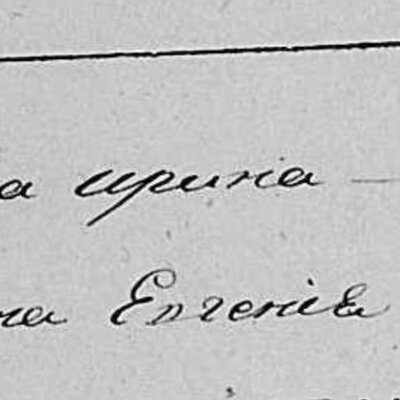 а ирина —
на Евгенія